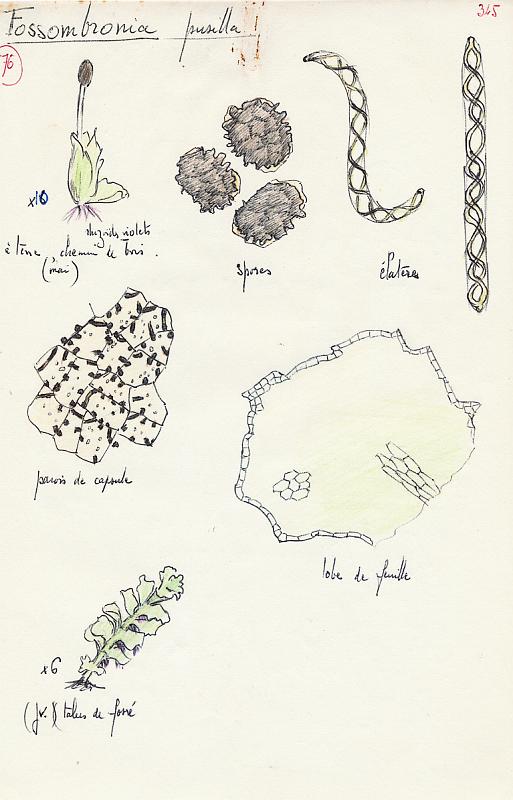 Fossombronia pusilla
345
76
x10
rhizoïdes violets
à terre, chemin de bois.
(mai)
spores
élatères
parois de capsule
lobe de feuille
x6
talus de fossé